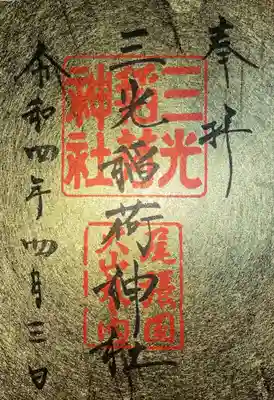 奉拝
三光稲荷神社
令和四年四月三日
三光
稲荷
神社
尾張国
犬山城